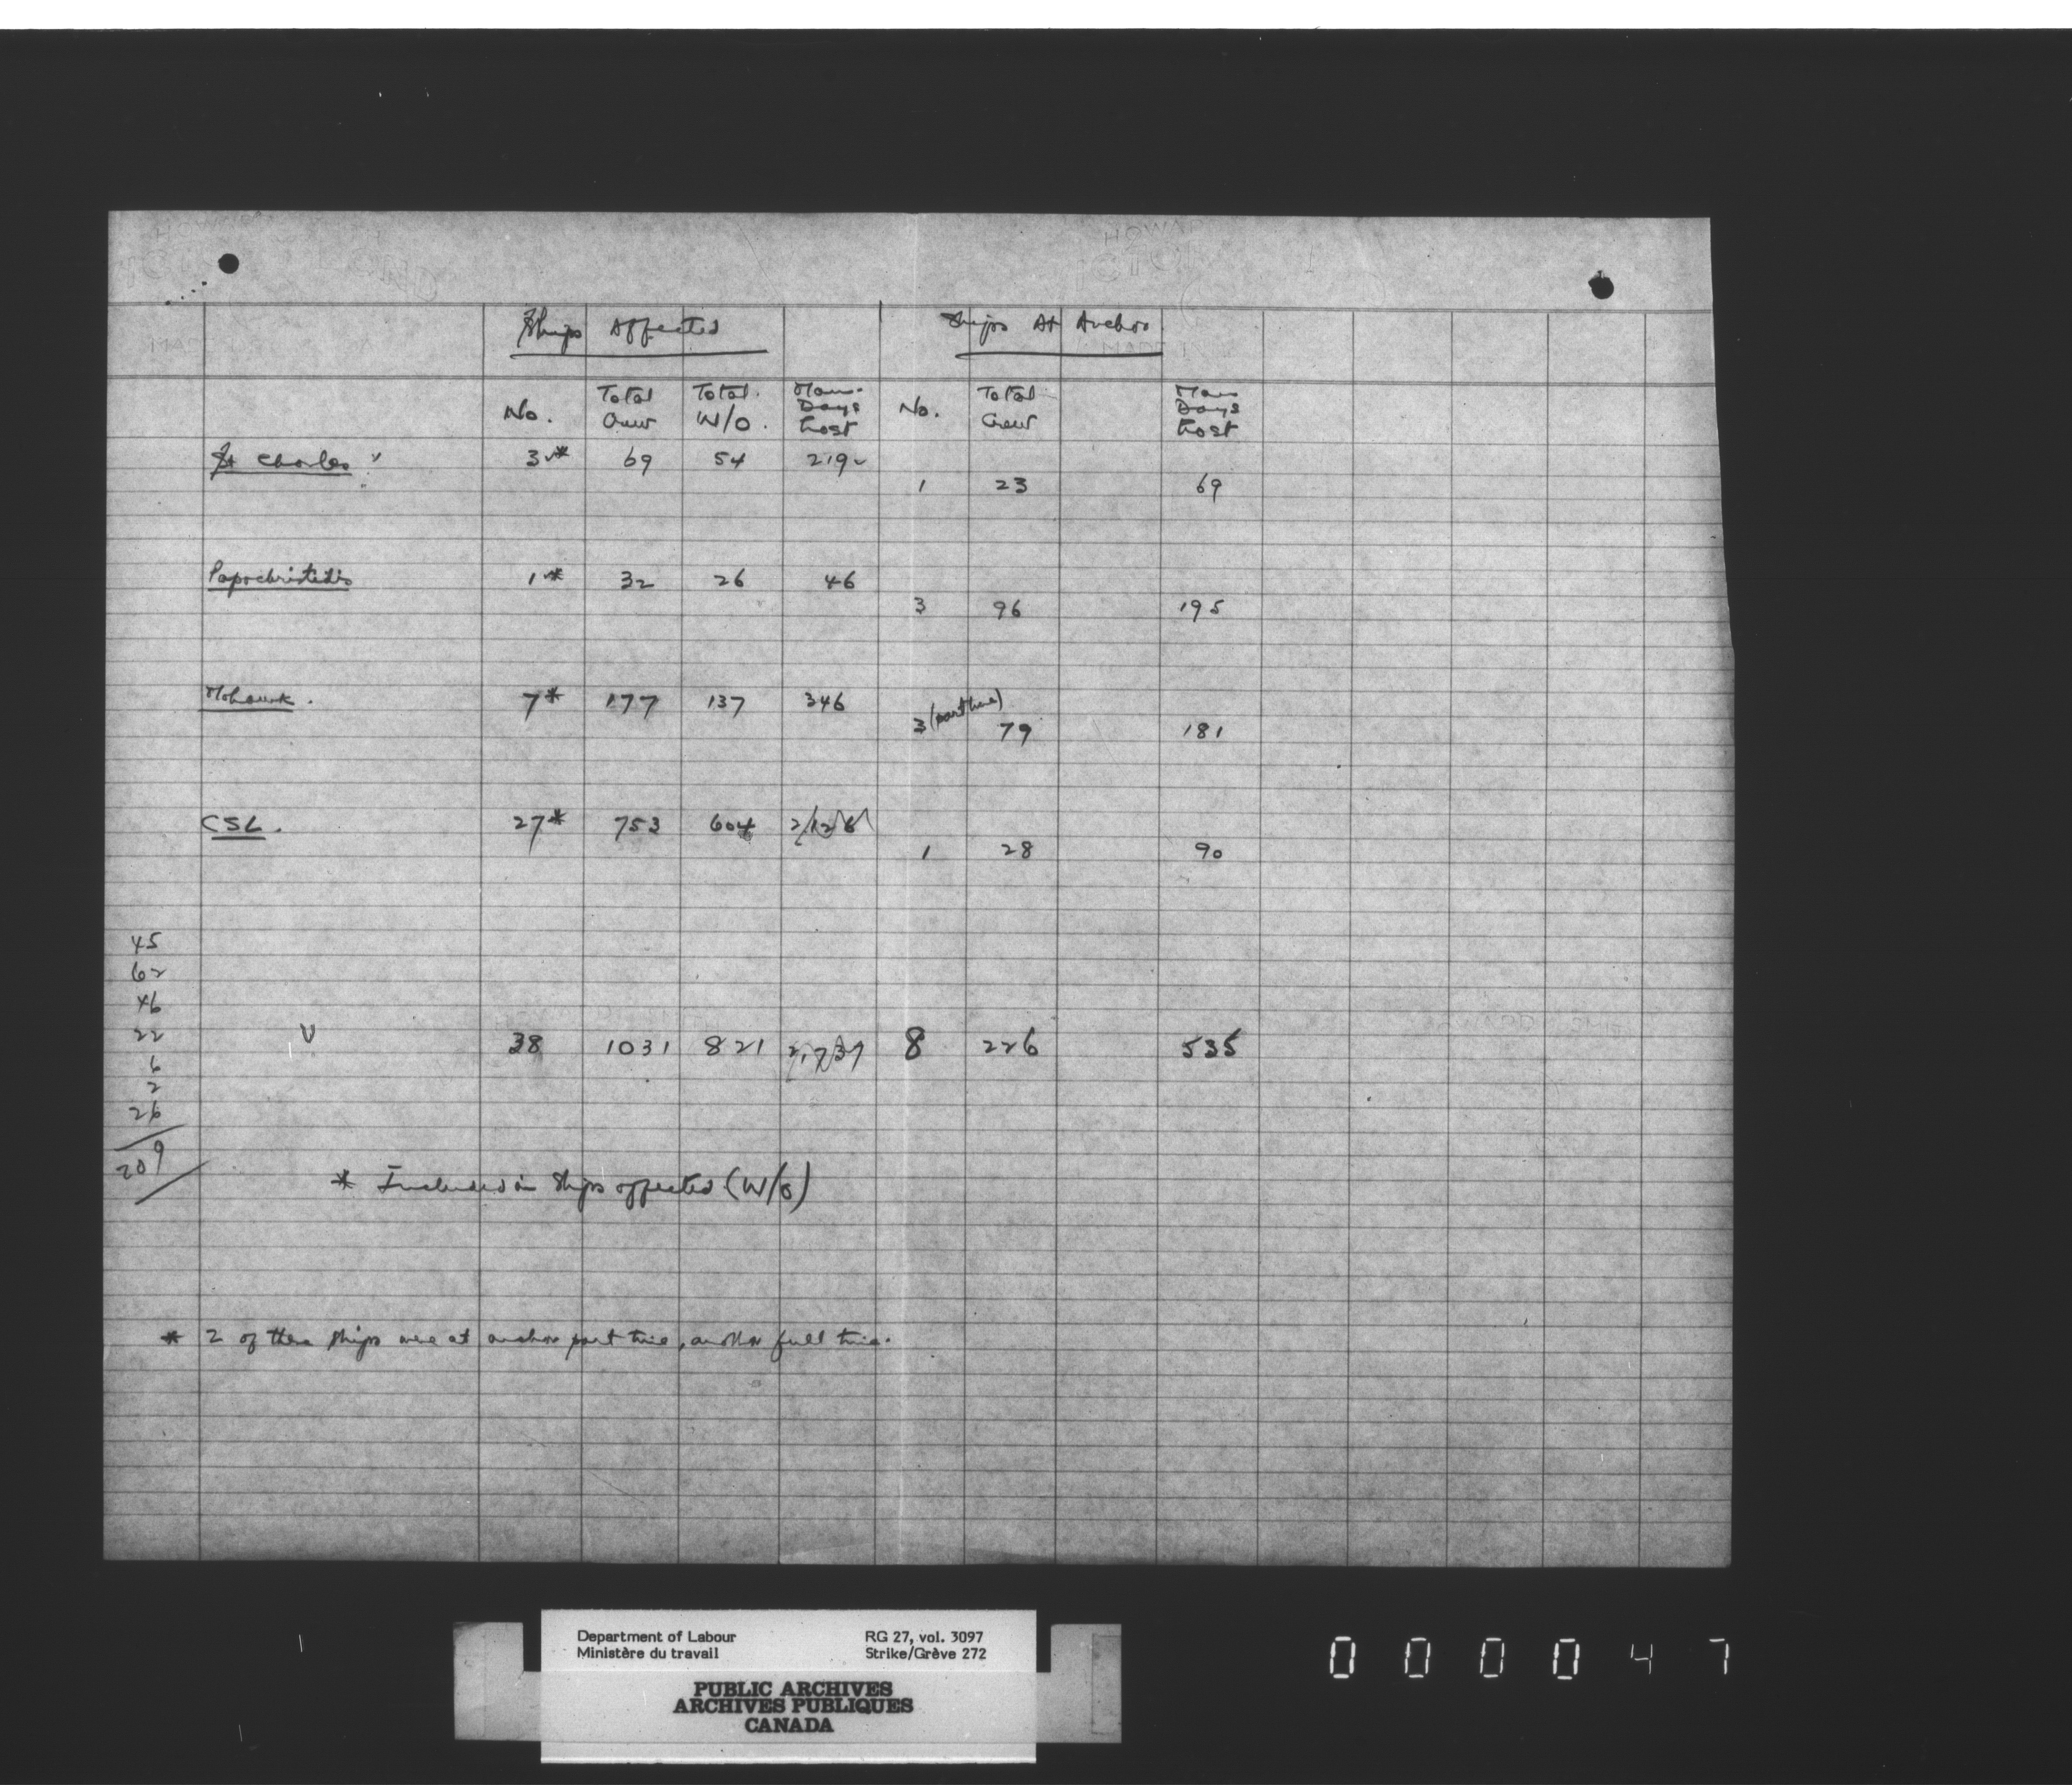 Ships Affected Ships At Anchor
No. Total Crew Total W/O. Man-Days Lost No. Total Crew Man Days Lost
St Charles 3* 69 54 219
1 23 69
Papachristidis 1* 32 26 46
3 96 195
Mohawk. 7* 177 137 346
3 (part time) 79 181
CSL. 27* 753 604 2,126
1 28 90
45
62
46
22
38 1031 821 2,737 8 226 535
6
2
26
209
* Included in Ships affected (W/O)
* 2 of these ships were at anchor part time, another full time.
Department of Labour RG 27, vol. 3097
Ministère du travail Strike/Grève 272
PUBLIC ARCHIVES
ARCHIVES PUBLIQUES
CANADA
000047